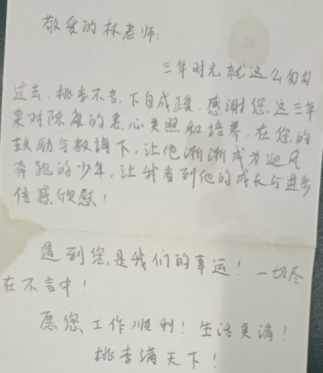 敬爱的林老师:
三年时光就这么匆匆
过去,桃李不言,下自成蹊,感谢您,这三年
来对陈康的悉心关照和培养,在您的
鼓励与教诲下,让他渐渐成为迎风
奔跑的少年,让我看到他的成长与进步
倍感欣慰!
遇到您,是我们的幸运!一切尽
在不言中!
愿您工作顺利!生活美满!
桃李满天下!